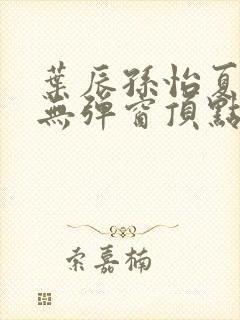 葉辰孫怡夏
無彈窗頂點
索嘉楠